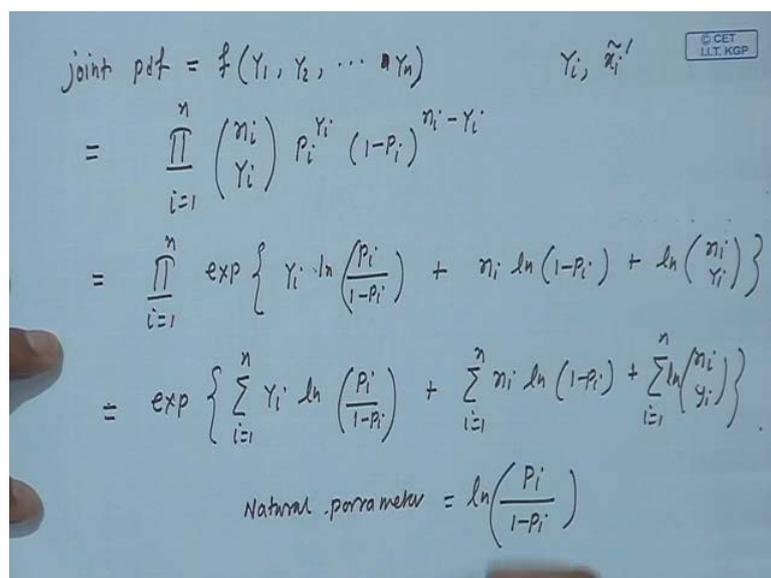 joint pdf = f(Y₁, Y₂, ⋯ Yₙ) Yᵢ, x̃ᵢ′
© CET
I.I.T. KGP
= ∏_{i=1}^{n} (nᵢ Yᵢ) Pᵢ^{Yᵢ} (1-Pᵢ)^{nᵢ-Yᵢ}
= ∏_{i=1}^{n} exp { Yᵢ ln (Pᵢ/(1-Pᵢ)) + nᵢ ln (1-Pᵢ) + ln (nᵢ Yᵢ) }
= exp { ∑_{i=1}^{n} Yᵢ ln (Pᵢ/(1-Pᵢ)) + ∑_{i=1}^{n} nᵢ ln (1-Pᵢ) + ∑_{i=1}^{n} ln (nᵢ yᵢ) }.
Natural parrameter = ln (Pᵢ/(1-Pᵢ))